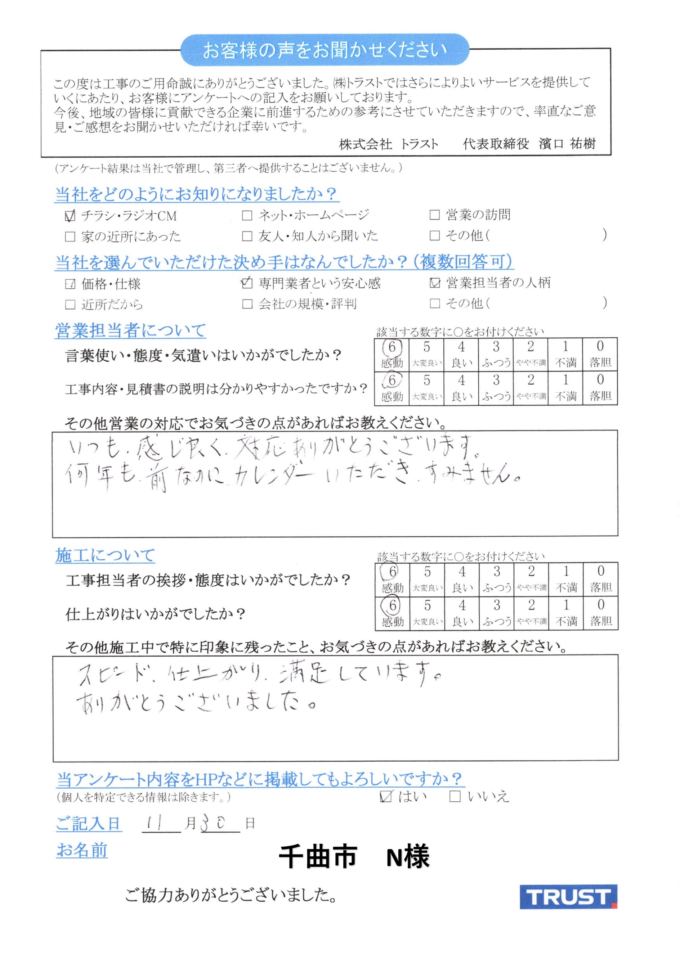 お客様の声をお聞かせください
この度は工事のご用命誠にありがとうございました。㈱トラストではさらによりよいサービスを提供して
いくにあたり、お客様にアンケートへの記入をお願いしております。
今後、地域の皆様に貢献できる企業に前進するための参考にさせていただきますので、率直なご意
見・ご感想をお聞かせいただければ幸いです。
株式会社 トラスト 代表取締役 濱口 祐樹
(アンケート結果は当社で管理し、第三者へ提供することはございません。)
当社をどのようにお知りになりましたか?
☑ チラシ・ラジオCM □ ネット・ホームページ □ 営業の訪問
□ 家の近所にあった □ 友人・知人から聞いた □ その他( )
当社を選んでいただけた決め手はなんでしたか?(複数回答可)
☑ 価格・仕様 ☑ 専門業者という安心感 ☑ 営業担当者の人柄
□ 近所だから □ 会社の規模・評判 □ その他( )
営業担当者について 該当する数字に○をお付けください
言葉使い・態度・気遣いはいかがでしたか? 6 5 4 3 2 1 0
感動 大変良い 良い ふつう やや不満 不満 落胆
工事内容・見積書の説明は分かりやすかったですか? 6 5 4 3 2 1 0
感動 大変良い 良い ふつう やや不満 不満 落胆
その他営業の対応でお気づきの点があればお教えください。
いつも、感じ良く、対応ありがとうございます。
何年も、前なのに、カレンダーいただき、すみません。
施工について 該当する数字に○をお付けください
工事担当者の挨拶・態度はいかがでしたか? 6 5 4 3 2 1 0
感動 大変良い 良い ふつう やや不満 不満 落胆
仕上がりはいかがでしたか? 6 5 4 3 2 1 0
感動 大変良い 良い ふつう やや不満 不満 落胆
その他施工中で特に印象に残ったこと、お気づきの点があればお教えください。
スピード、仕上がり、満足しています。
ありがとうございました。
当アンケート内容をHPなどに掲載してもよろしいですか?
(個人を特定できる情報は除きます。) ☑ はい □ いいえ
ご記入日 11 月 30 日
お名前 千曲市 N様
ご協力ありがとうございました。
TRUST.